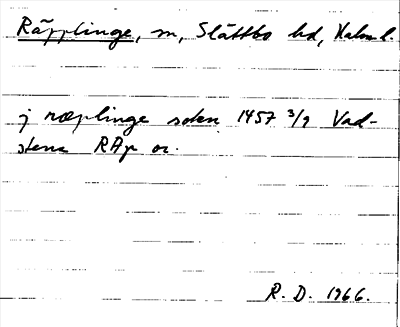 Räpplinge, sn, Slättbo hd, Kalm l.
j ræplinge sokn 1457 3/9 Vad-
stena RAp or.
R. D. 1966.